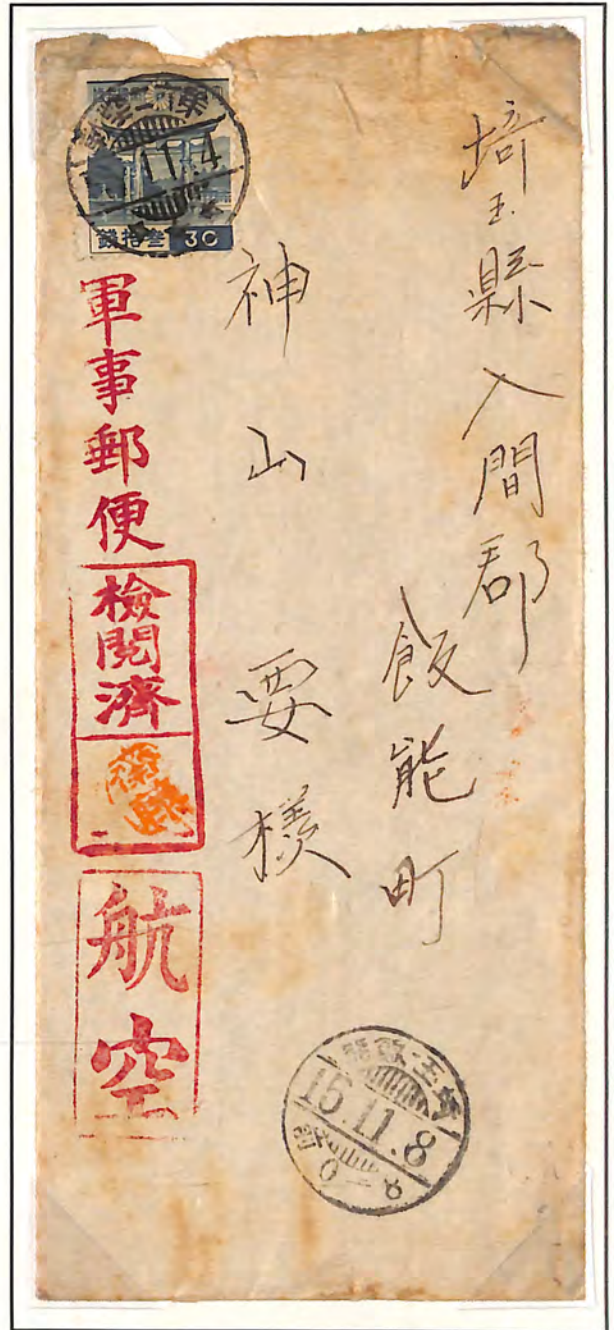 埼玉縣入間郡
飯能町
神山要様
參拾錢 30
11.4
軍事郵便
檢閱濟
航空
埼玉・飯能
15.11.8
后0-8